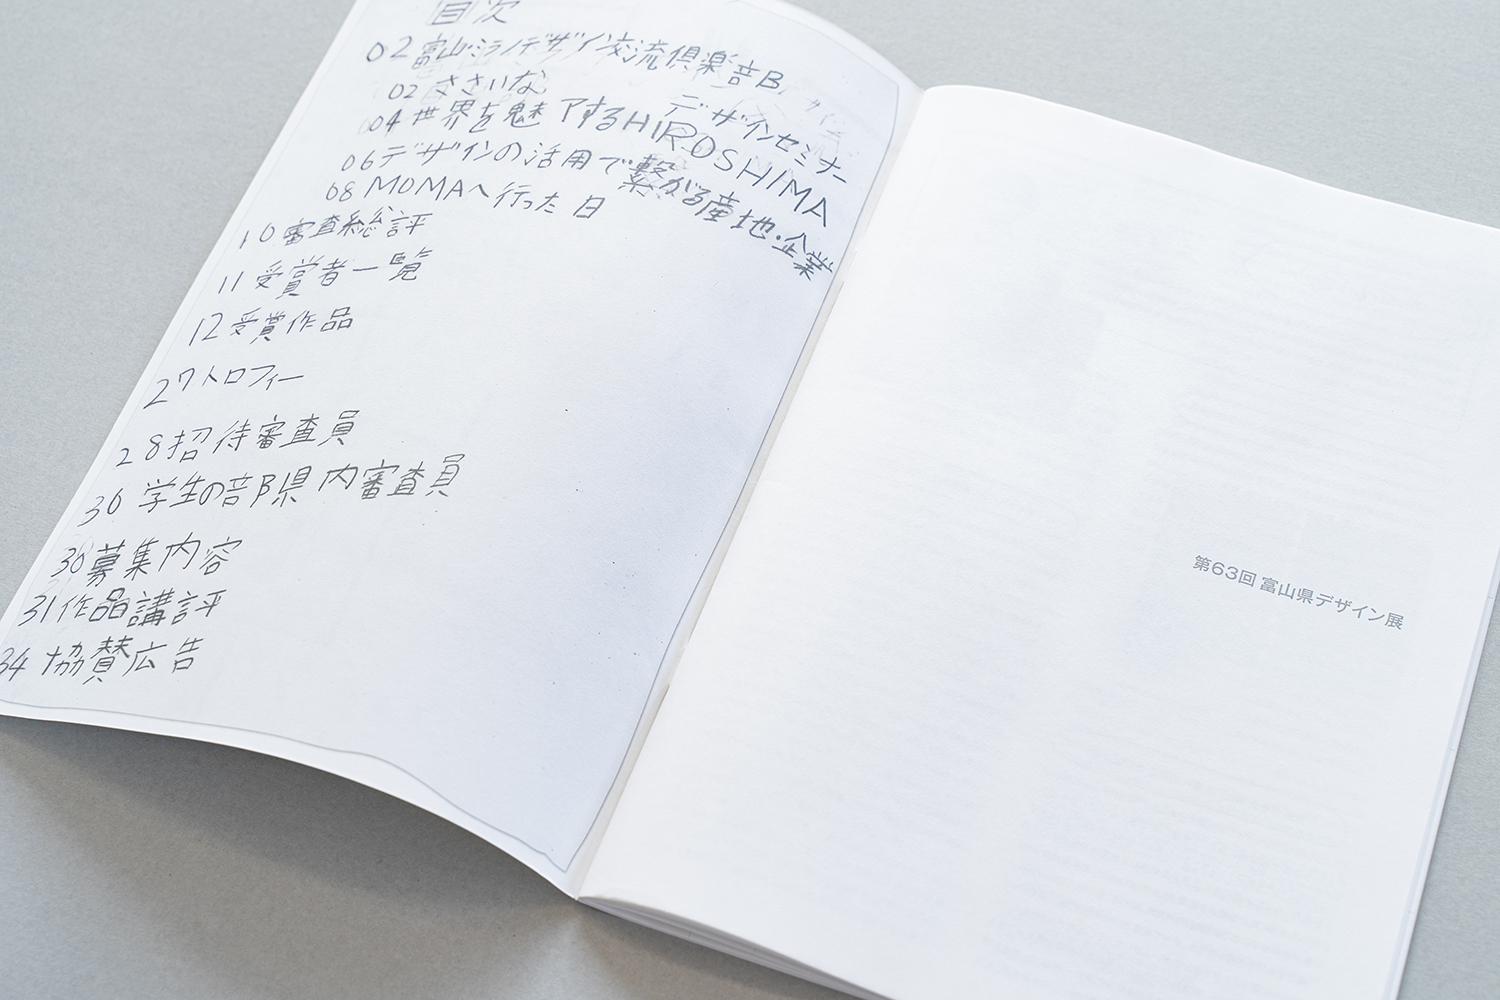 目次
02 富山ミラノデザイン交流倶楽部
デザインセミナー
02 ささいな
04 世界を魅了するHIROSHIMA
06 デザインの活用で繋がる産地・企業
08 MOMAへ行った日
10 審査総評
11 受賞者一覧
12 受賞作品
27 トロフィー
28 招待審査員
30 学生の部県内審査員
30 募集内容
31 作品講評
34 協賛広告
第63回 富山県デザイン展